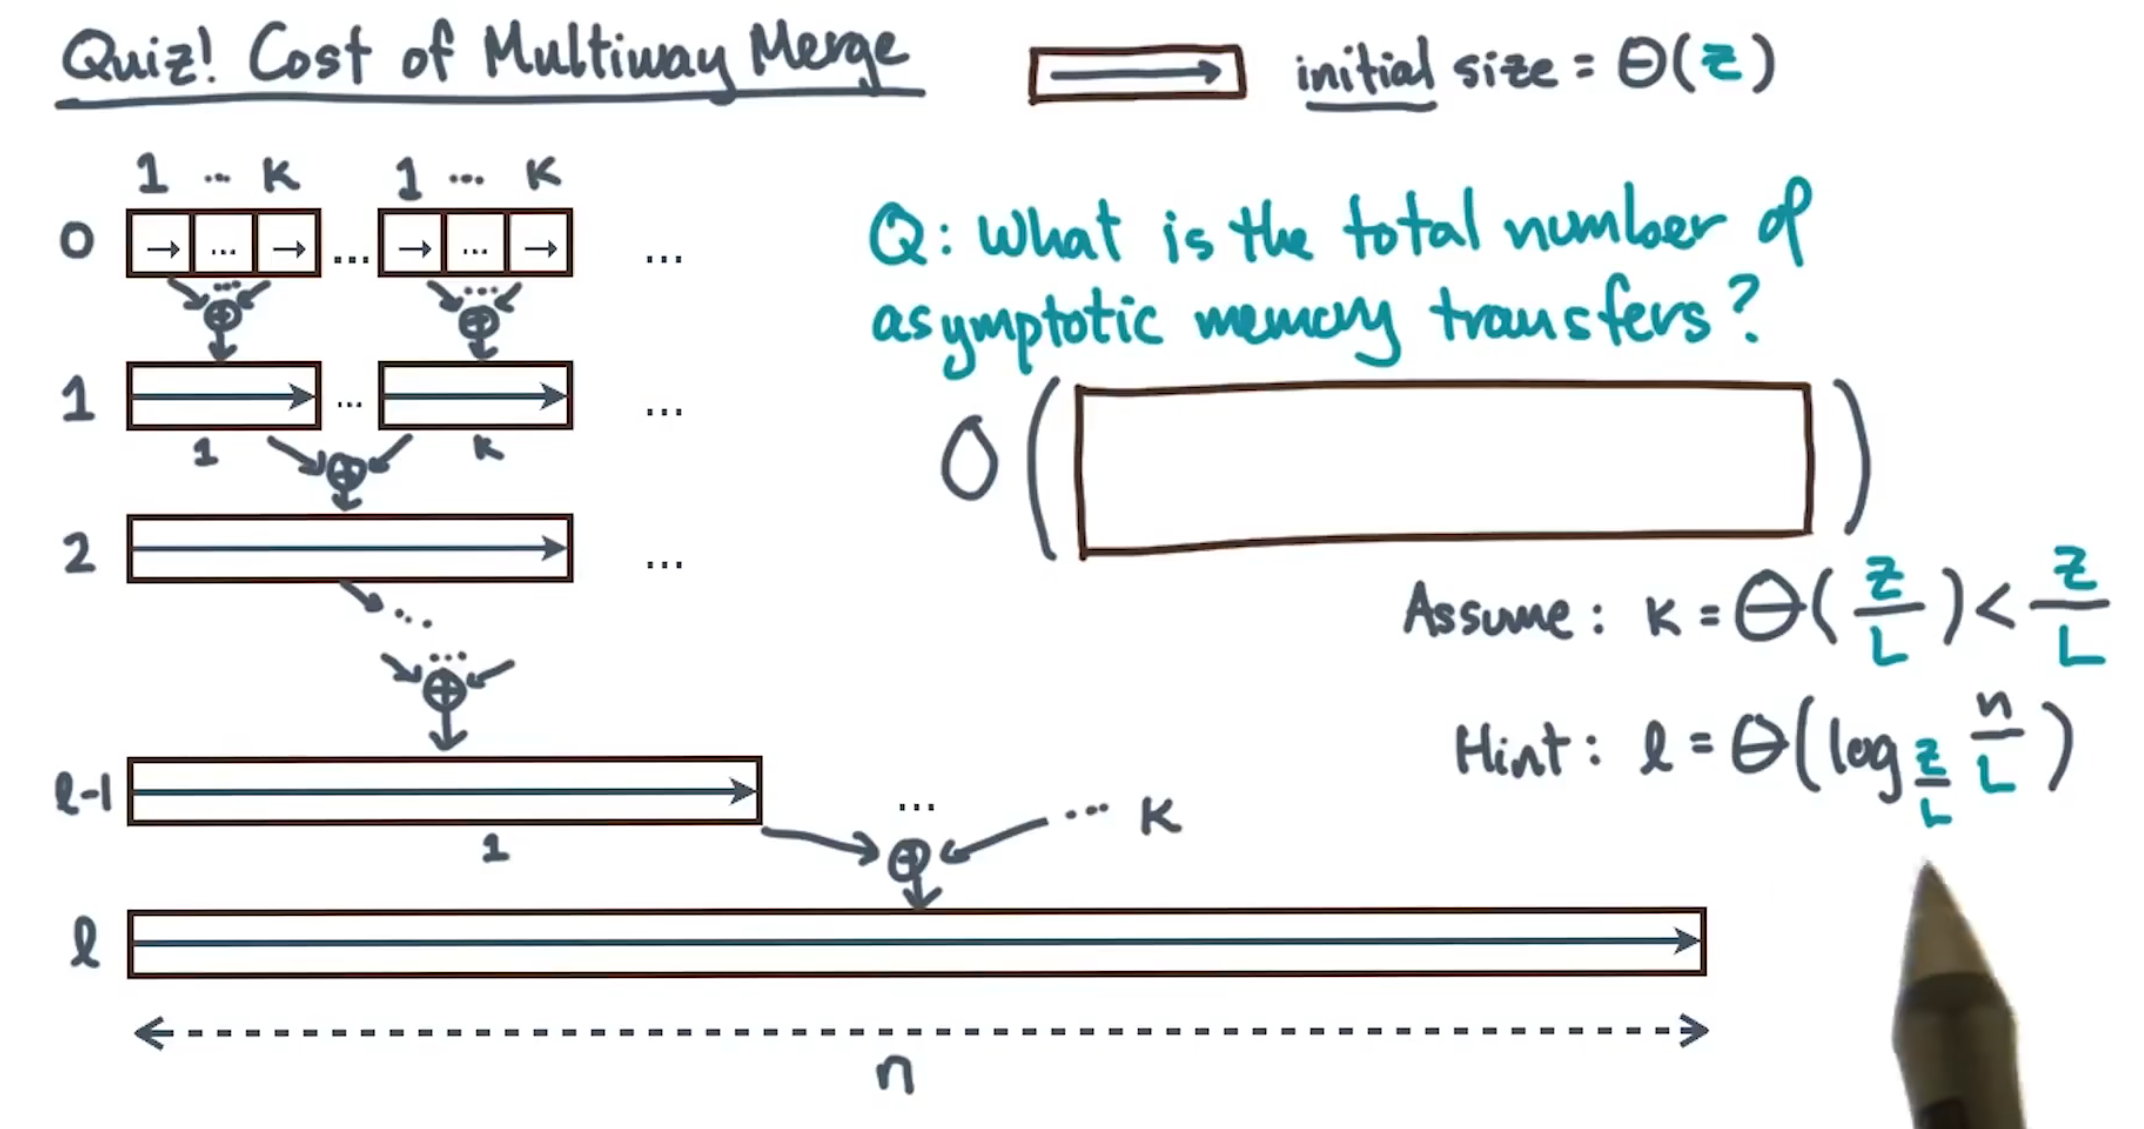 Quiz! Cost of Multiway Merge
initial size = Θ(Z)
1 ... K 1 ... K
0 → ... → ... → ... → ...
1 ... ...
1 K
2 ...
Q: What is the total number of
asymptotic memory transfers?
O( )
Assume: K = Θ(Z/L) < Z/L
Hint: l = Θ(log_{Z/L} n/L)
l-1 ... ... K
1
l
n